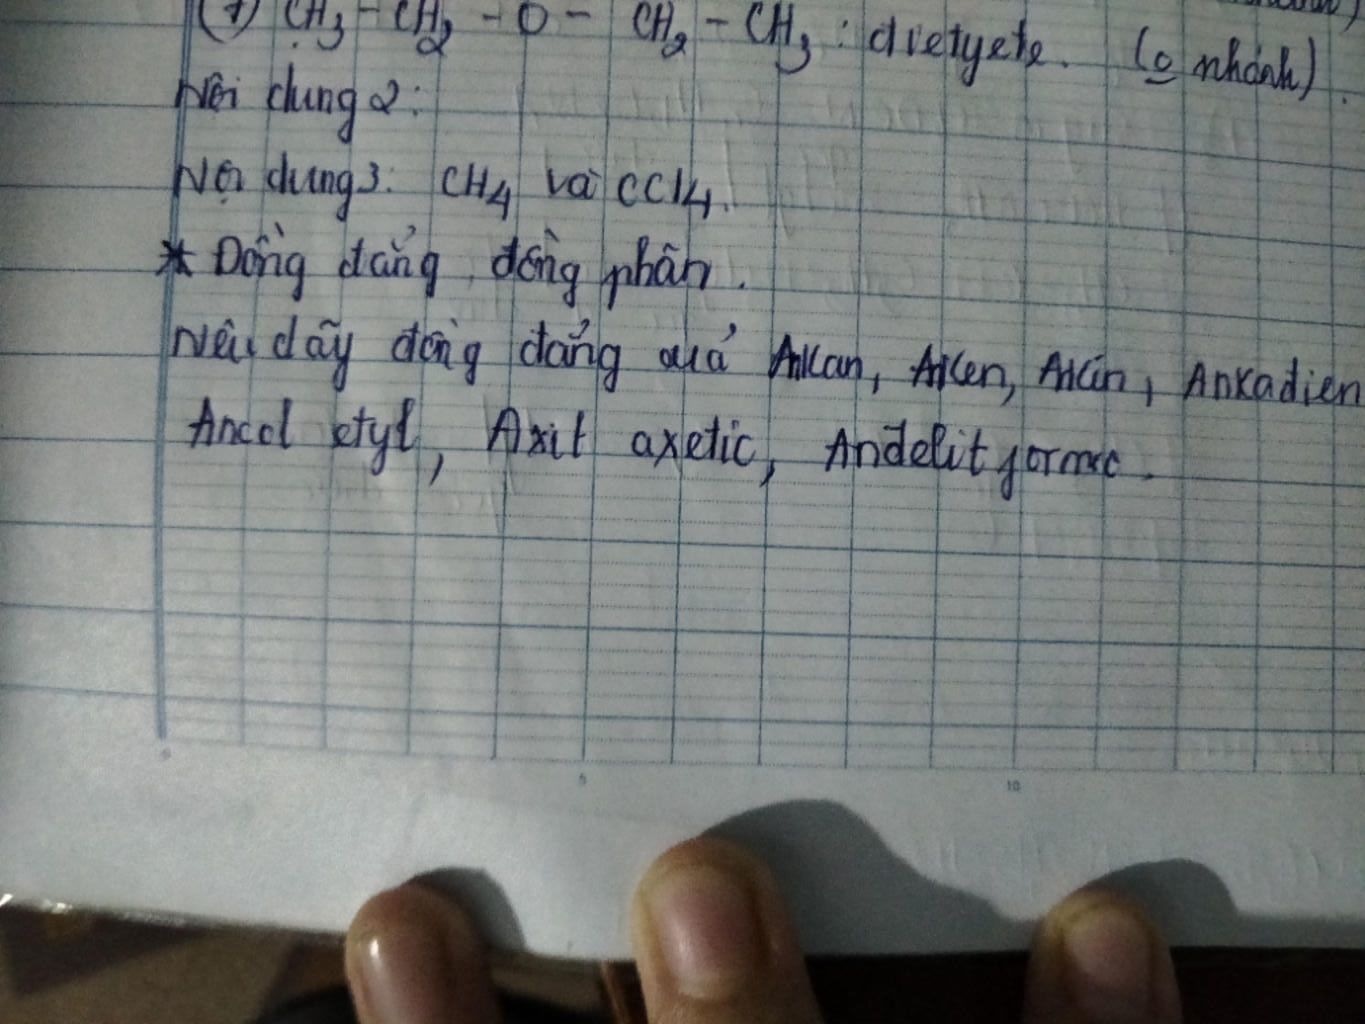 (7) CH3 - CH2 - O - CH2 - CH3 : đietyete. (o nhánh).
Nội dung 2:
Nội dung 3: CH4 và CCl4.
* Đồng đẳng, đồng phân.
Nêu dãy đồng đẳng quả Ankan, Anken, Ankin, Ankadien
Ancol etyl, Axit axetic, Anđehit fomic.